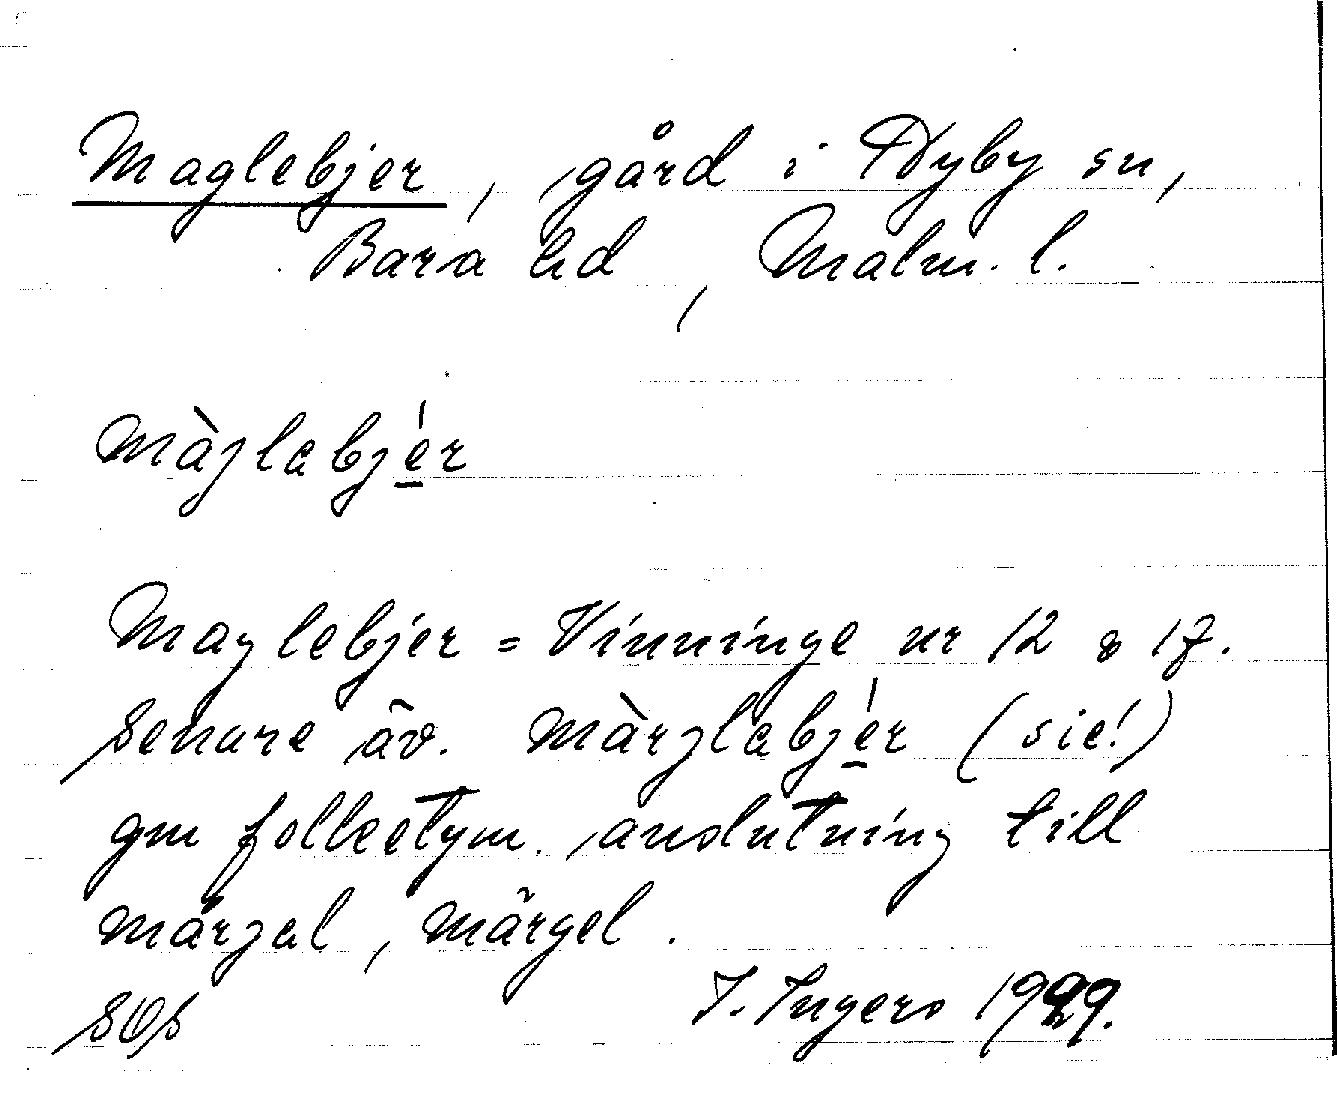 Maglebjer, gård i Hyby sn,
Bara hd, Malm. l.
màjlabjér
Maglebjer = Vinninge nr 12 & 17.
Senare äv. màrjlabjér (sic!)
gm folketym. anslutning till
màrjal, märgel.
I. Ingers 1929.